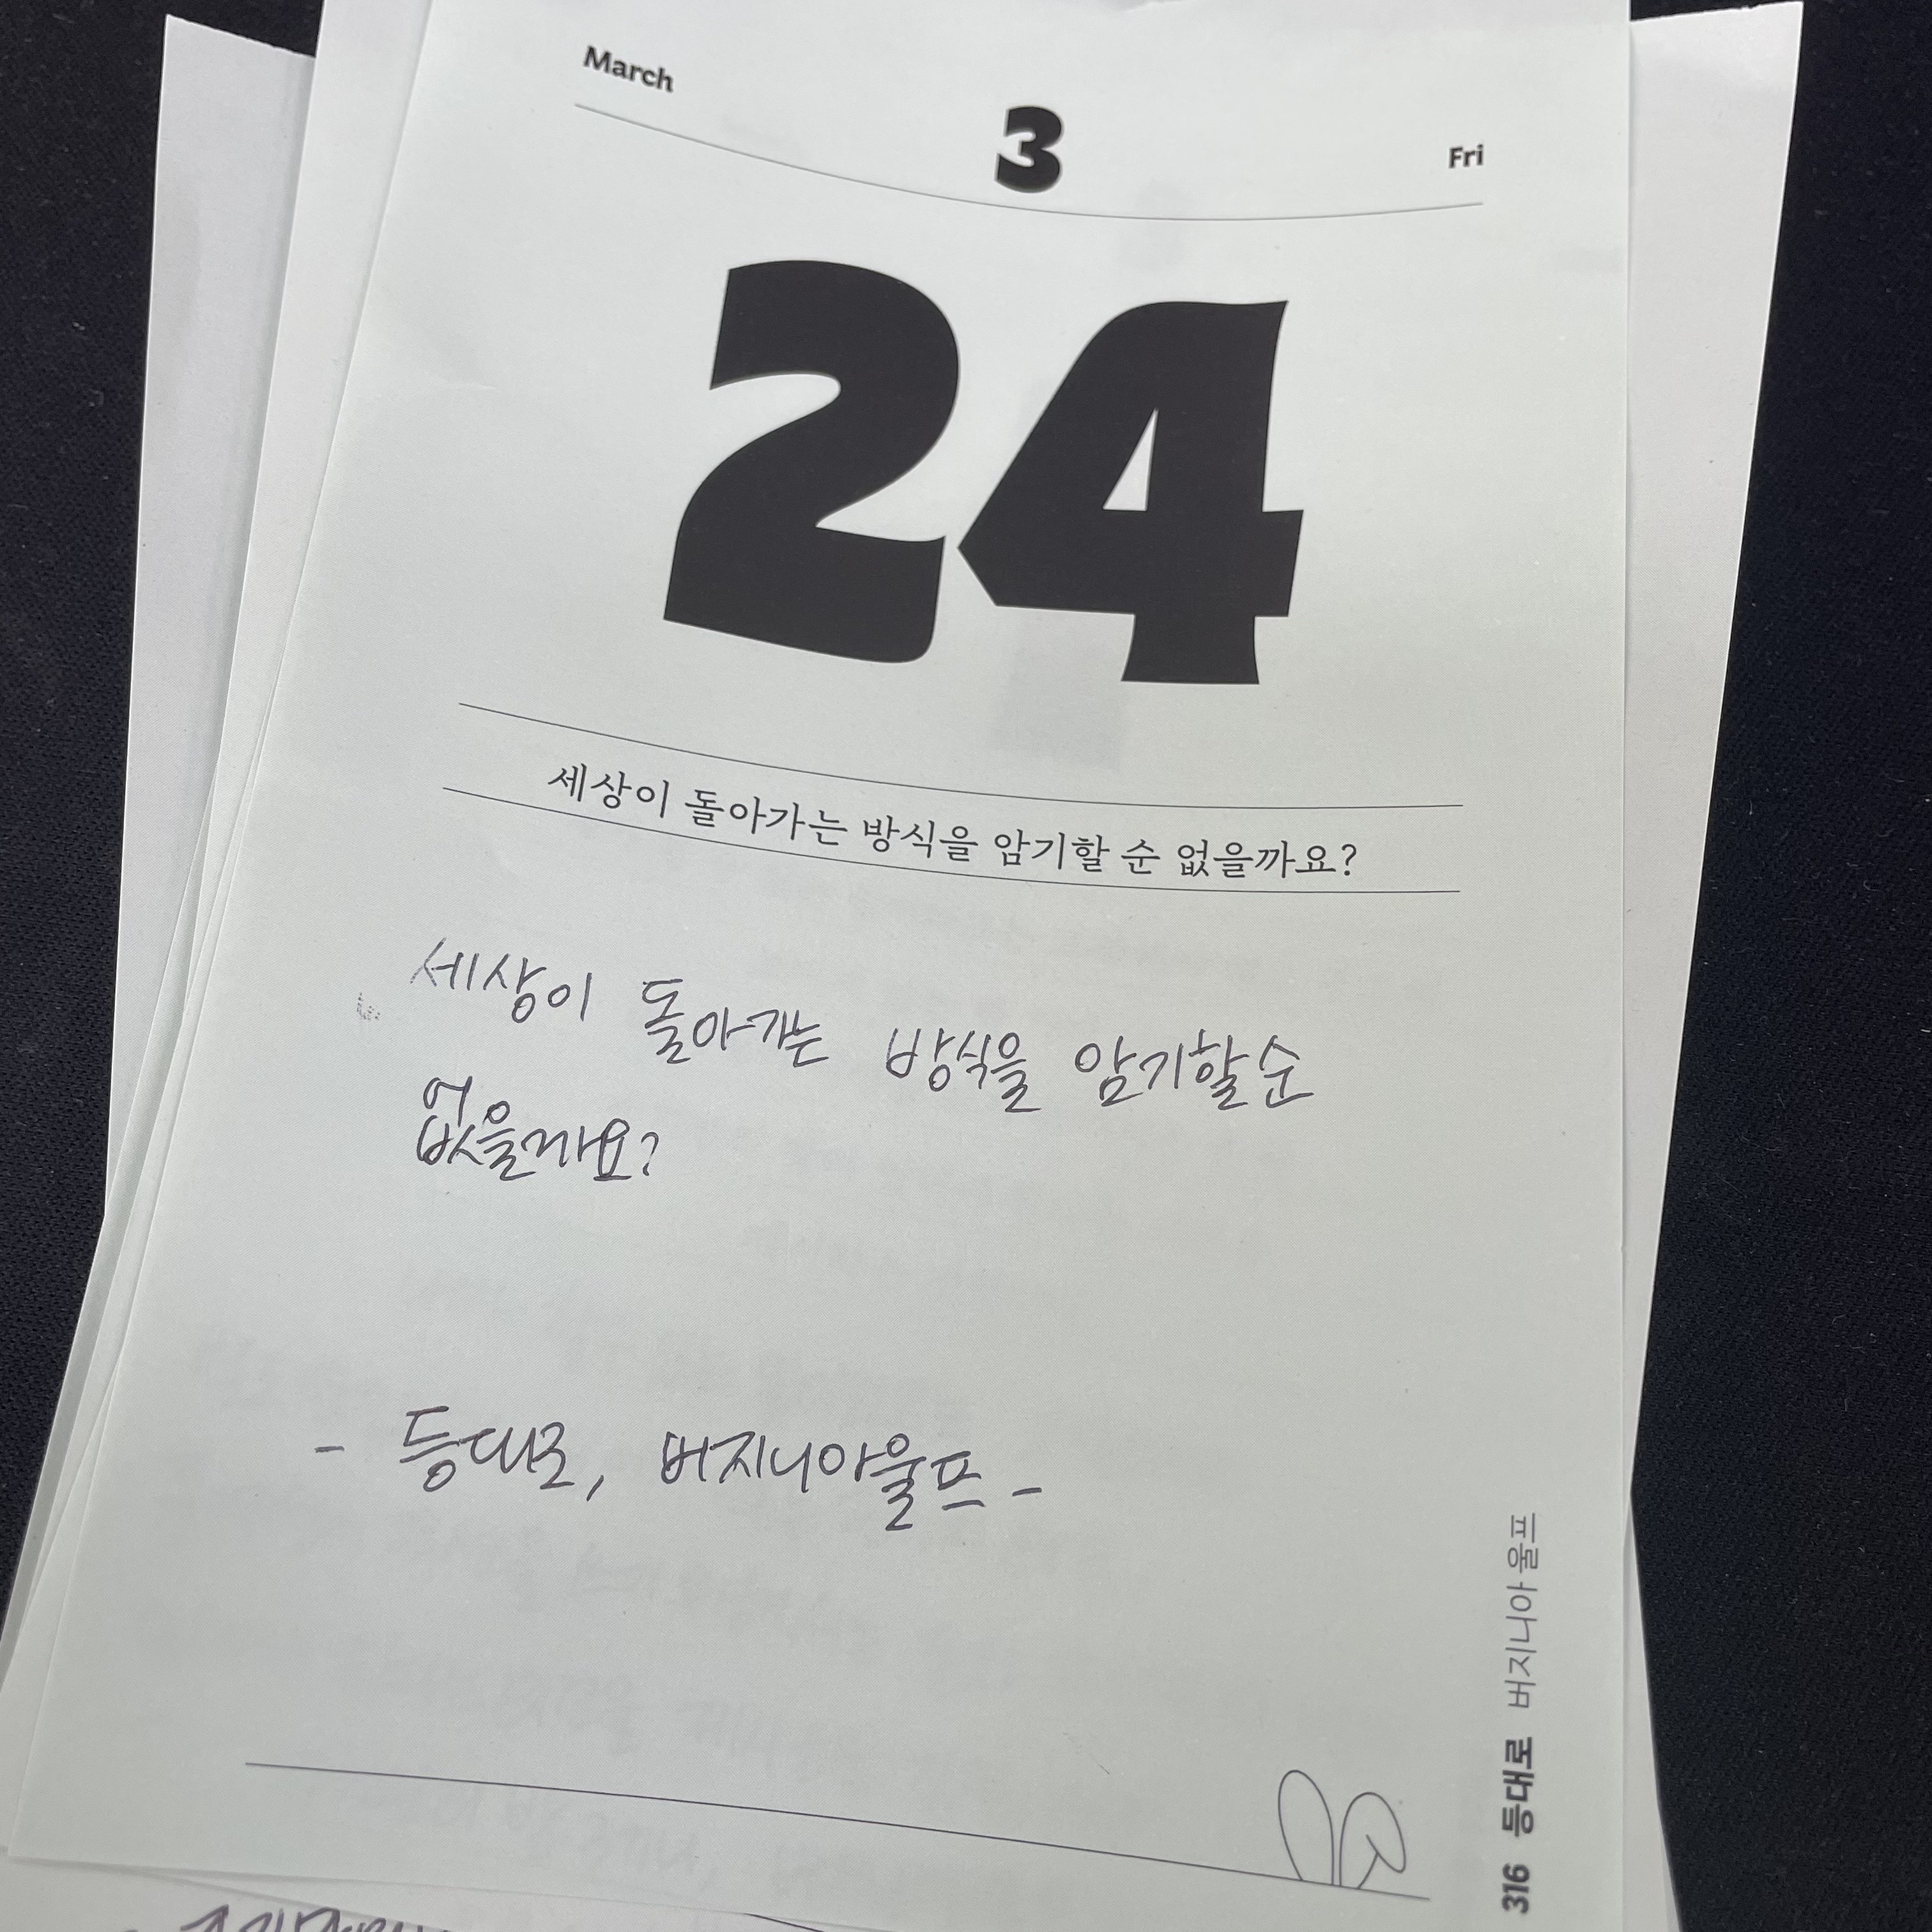 March
3
Fri
24
세상이 돌아가는 방식을 암기할 순 없을까요?
세상이 돌아가는 방식을 암기할 순
없을까요?
- 등대로, 버지니아울프 -
316 등대로 버지니아 울프